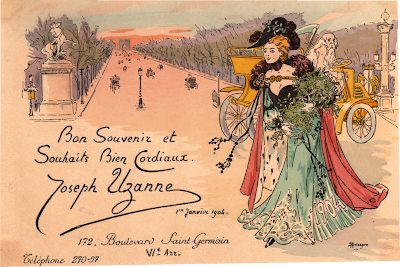 Bon Souvenir et
Souhaits Bien Cordiaux.
Joseph Uzanne
1er Janvier 1904.
172, Boulevard Saint-Germain
VIe Arr.
Téléphone 270-97
1904